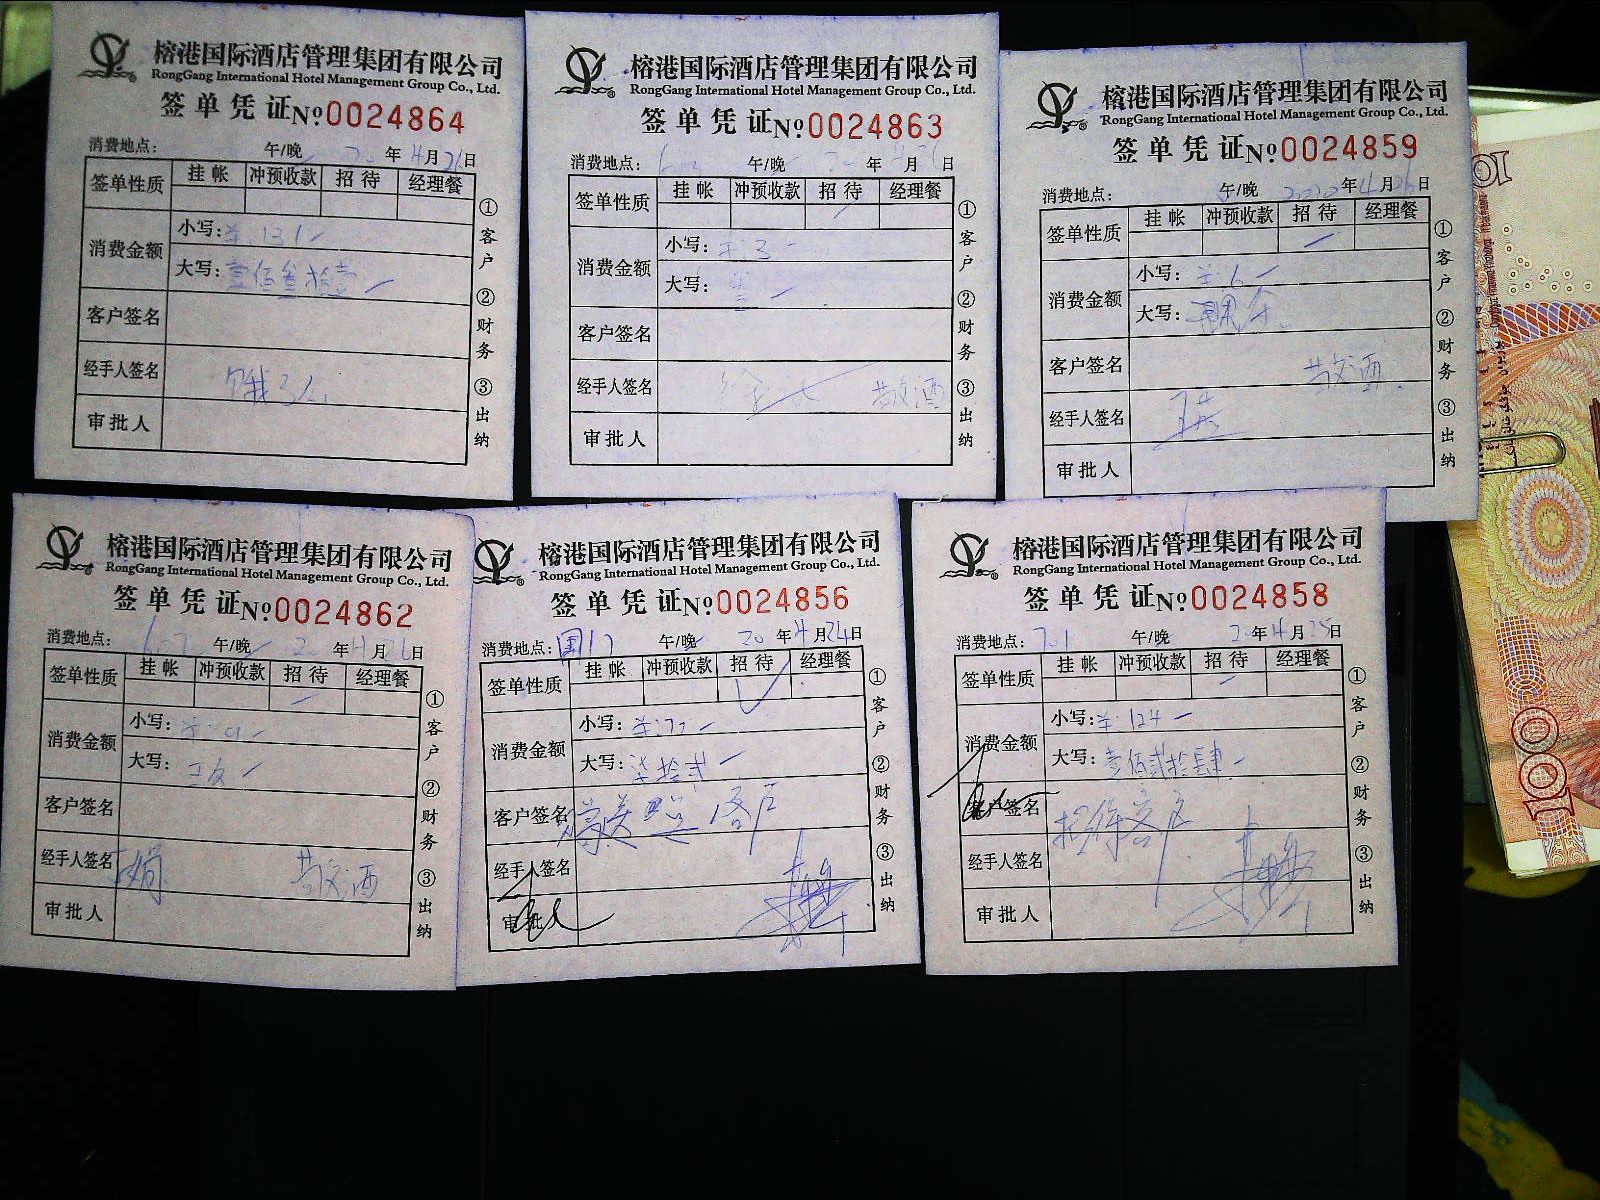 榕港国际酒店管理集团有限公司
RongGang International Hotel Management Group Co., Ltd.
签单凭证 №0024864
消费地点： 午/晚 20年4月26日
签单性质 挂帐 冲预收款 招待 经理餐
消费金额 小写：¥:131
大写：壹佰叁拾壹
客户签名
经手人签名
审批人
①客户 ②财务 ③出纳
榕港国际酒店管理集团有限公司
RongGang International Hotel Management Group Co., Ltd.
签单凭证 №0024863
消费地点： 午/晚 年 月 日
签单性质 挂帐 冲预收款 招待 经理餐
消费金额 小写：
大写：
客户签名
经手人签名 酒
审批人
①客户 ②财务 ③出纳
榕港国际酒店管理集团有限公司
RongGang International Hotel Management Group Co., Ltd.
签单凭证 №0024859
消费地点： 午/晚 2020年4月26日
签单性质 挂帐 冲预收款 招待 经理餐
消费金额 小写：
大写：
客户签名 酒
经手人签名
审批人
①客户 ②财务 ③出纳
榕港国际酒店管理集团有限公司
RongGang International Hotel Management Group Co., Ltd.
签单凭证 №0024862
消费地点：607 午/晚 20年4月26日
签单性质 挂帐 冲预收款 招待 经理餐
消费金额 小写：
大写：
客户签名
经手人签名 酒
审批人
①客户 ②财务 ③出纳
榕港国际酒店管理集团有限公司
RongGang International Hotel Management Group Co., Ltd.
签单凭证 №0024856
消费地点： 午/晚 20年4月24日
签单性质 挂帐 冲预收款 招待 经理餐
消费金额 小写：
大写：柒拾贰
客户签名 客户
经手人签名
审批人
①客户 ②财务 ③出纳
榕港国际酒店管理集团有限公司
RongGang International Hotel Management Group Co., Ltd.
签单凭证 №0024858
消费地点：701 午/晚 20年4月25日
签单性质 挂帐 冲预收款 招待 经理餐
消费金额 小写：¥124
大写：壹佰贰拾肆
客户签名 招待客户
经手人签名
审批人
①客户 ②财务 ③出纳
100